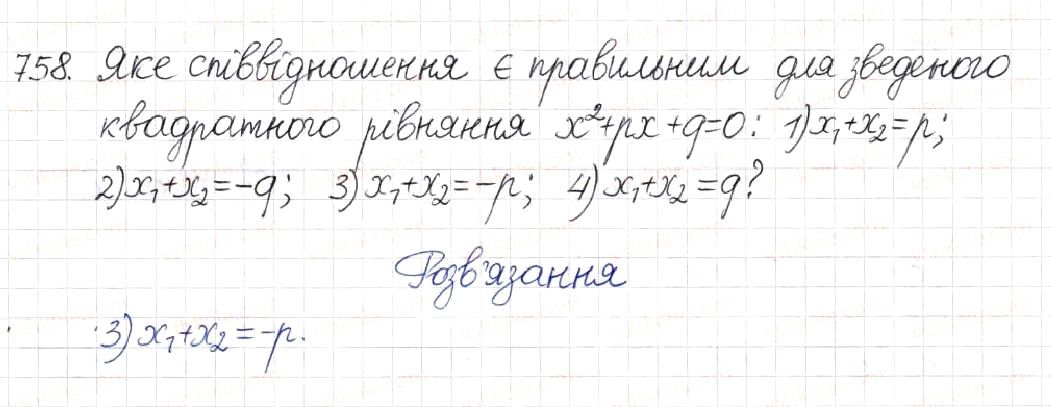 758. Яке співвідношення є правильним для зведеного
квадратного рівняння x²+px+q=0: 1) x₁+x₂=p;
2) x₁+x₂=-q; 3) x₁+x₂=-p; 4) x₁+x₂=q?
Розв'язання
3) x₁+x₂=-p.